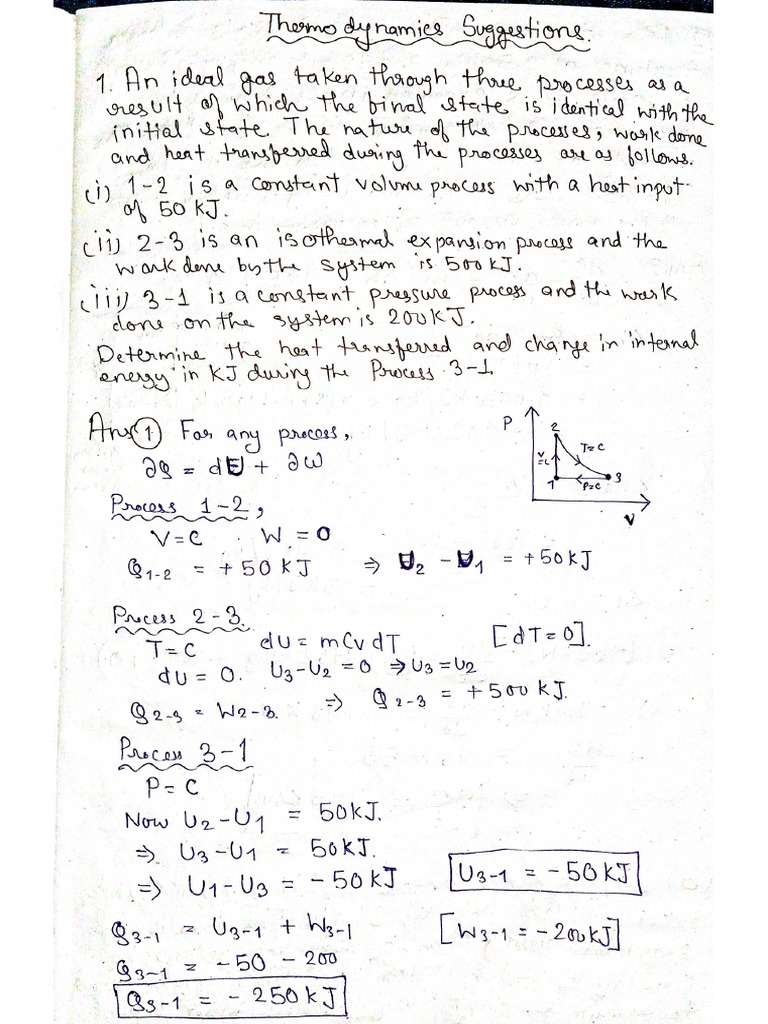 Thermodynamics Suggestions.
1. An ideal gas taken through three processes as a
result of which the final state is identical with the
initial state. The nature of the processes, work done
and heat transferred during the processes are as follows.
(i) 1-2 is a constant volume process with a heat input
of 50 KJ.
(ii) 2-3 is an isothermal expansion process and the
work done by the system is 500KJ.
(iii) 3-1 is a constant pressure process and the work
done on the system is 200KJ.
Determine the heat transferred and change in internal
energy in KJ during the Process 3-1.
Ans ① For any process,
∂Q = dU + ∂W
P
2
T=C
V=C
1
P=C
3
V
Process 1-2,
V=C W = 0
Q1-2 = +50KJ ⇒ U2 - U1 = +50KJ
Process 2-3.
T=C dU = mCv dT [dT=0].
dU = 0. U3-U2 = 0 ⇒ U3 = U2
Q2-3 = W2-3. ⇒ Q2-3 = +500KJ.
Process 3-1
P = C
Now U2-U1 = 50KJ.
⇒ U3-U1 = 50KJ.
⇒ U1-U3 = -50KJ
U3-1 = -50KJ
Q3-1 = U3-1 + W3-1 [W3-1 = -200KJ]
Q3-1 = -50 - 200
Q3-1 = -250KJ